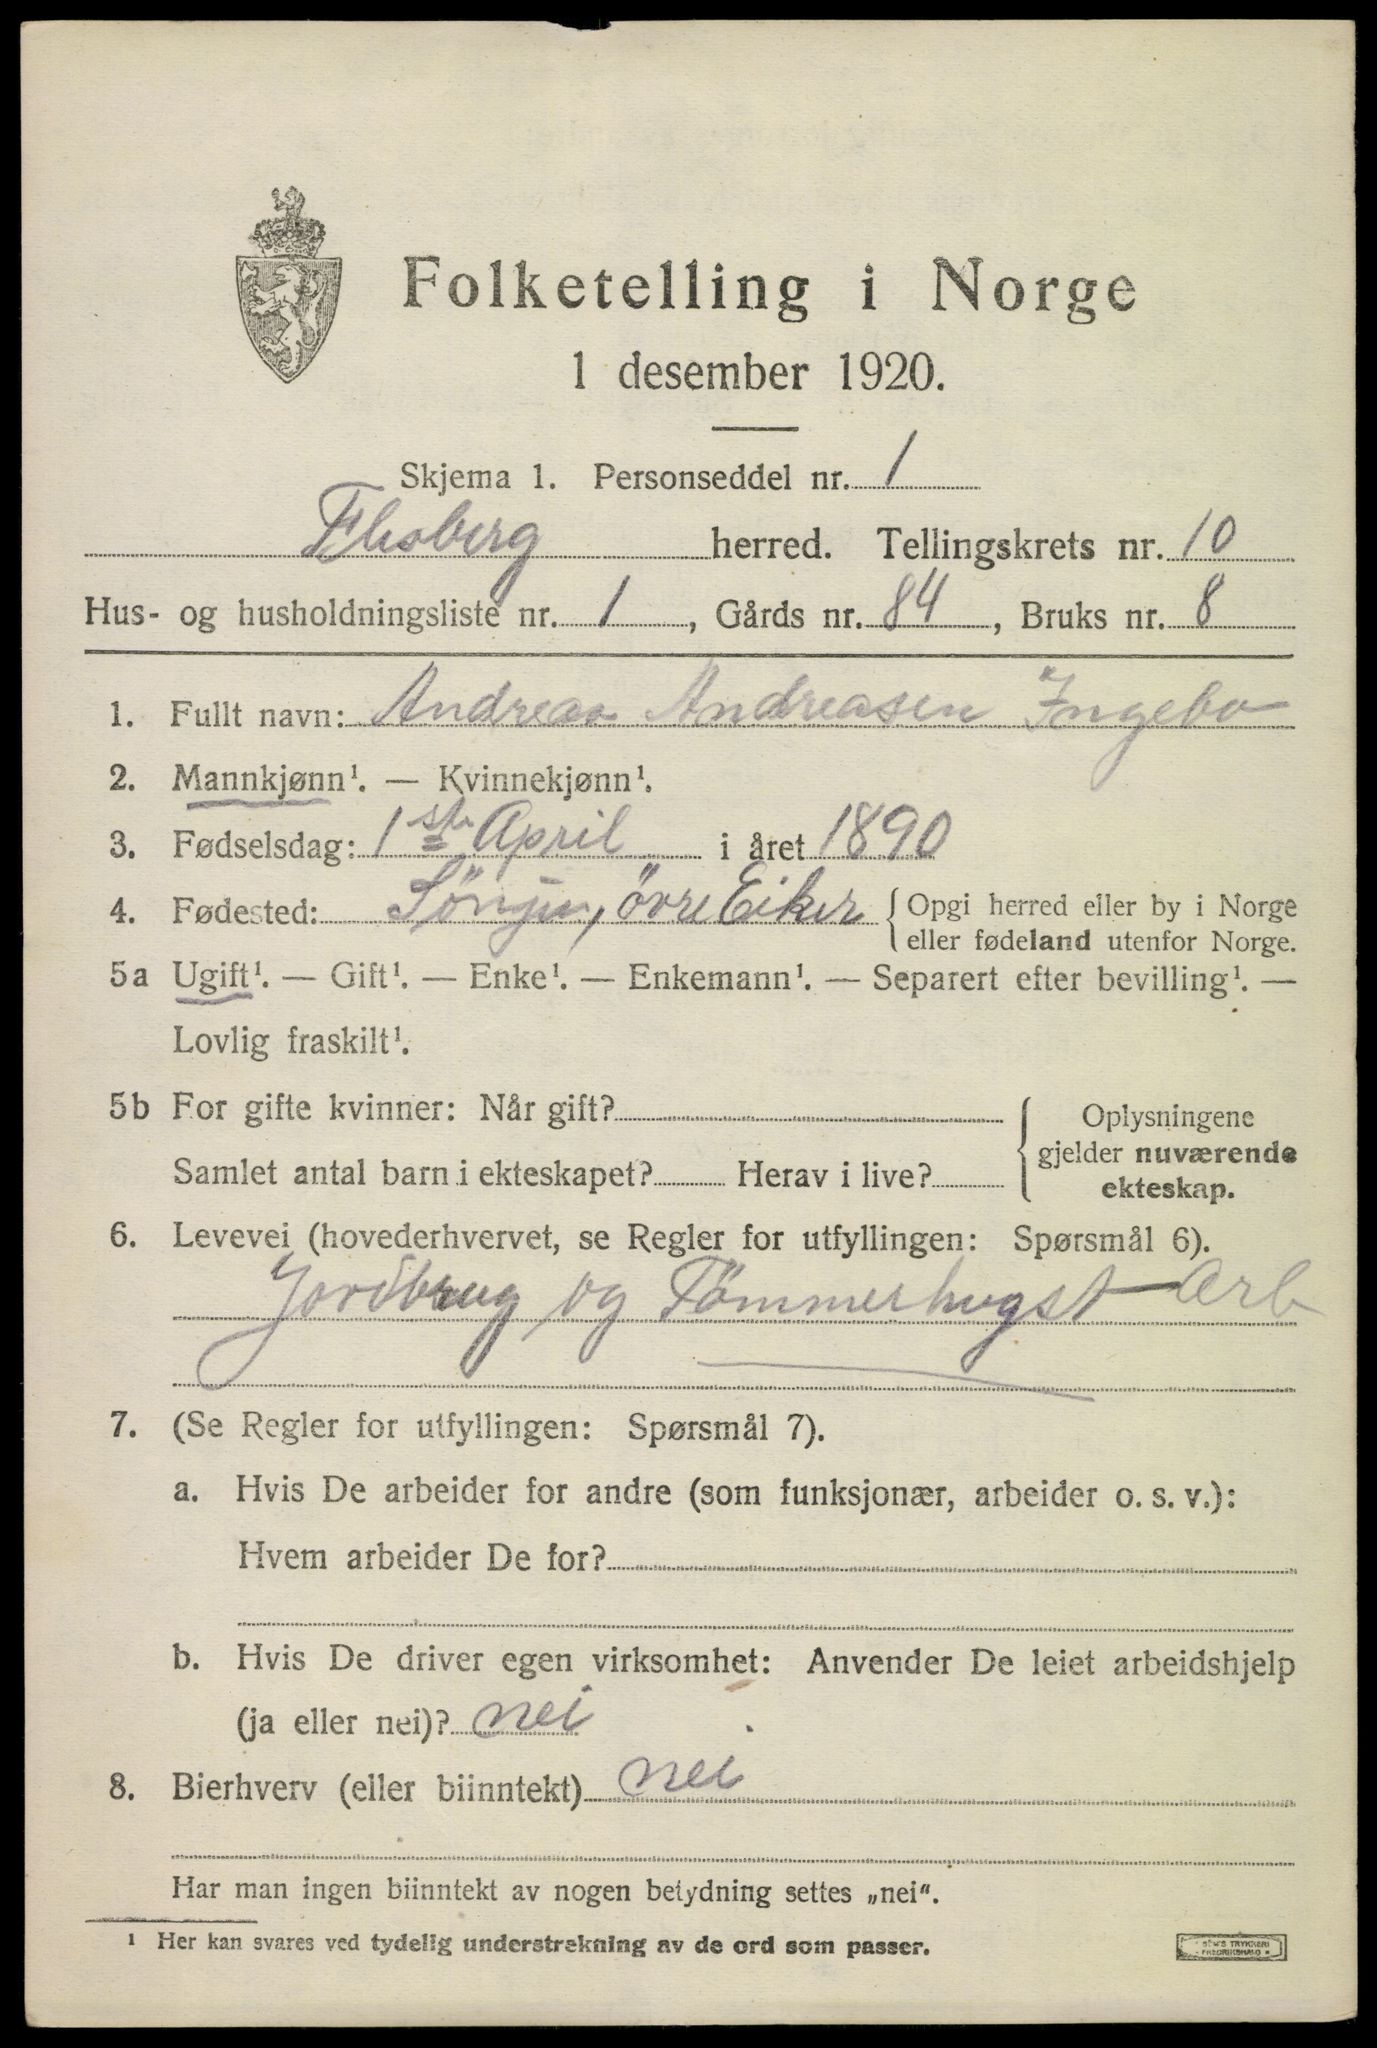 Folketelling i Norge
1 desember 1920.
Skjema 1. Personseddel nr. 1
Flesberg herred. Tellingskrets nr. 10
Hus- og husholdningsliste nr. 1, Gårds nr. 84, Bruks nr. 8
1. Fullt navn: Andreas Andreasen Ingebo
2. Mannkjønn¹. — Kvinnekjønn¹.
3. Fødselsdag: 1ste April i året 1890
4. Fødested: øvre Eiker { Opgi herred eller by i Norge
eller fødeland utenfor Norge.
5a Ugift¹. — Gift¹. — Enke¹. — Enkemann¹. — Separert efter bevilling¹. —
Lovlig fraskilt¹.
5b For gifte kvinner: Når gift?
Samlet antal barn i ekteskapet? Herav i live?
Oplysningene
gjelder nuværende
ekteskap.
6. Levevei (hovederhvervet, se Regler for utfyllingen: Spørsmål 6).
Jordbrug og Tömmerhugst Arb
7. (Se Regler for utfyllingen: Spørsmål 7).
a. Hvis De arbeider for andre (som funksjonær, arbeider o. s. v.):
Hvem arbeider De for?
b. Hvis De driver egen virksomhet: Anvender De leiet arbeidshjelp
(ja eller nei)? nei
8. Bierhverv (eller biinntekt) nei
Har man ingen biinntekt av nogen betydning settes „nei“.
¹ Her kan svares ved tydelig understrekning av de ord som passer.
TRYKKERI
FREDRIKSHALD